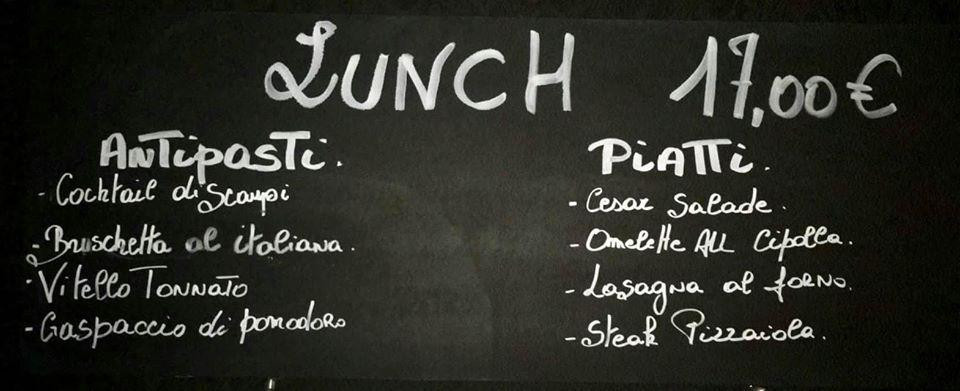 LUNCH 17,00€
Antipasti.
- Cocktail di Scampi
- Bruschetta al italiana.
- Vitello TONNATO
- Gaspaccio di pomodoro
PiATTi.
- Cesar Salade.
- Omelette ALL Cipolla.
- Lasagna al forno.
- Steak Pizzaiola.